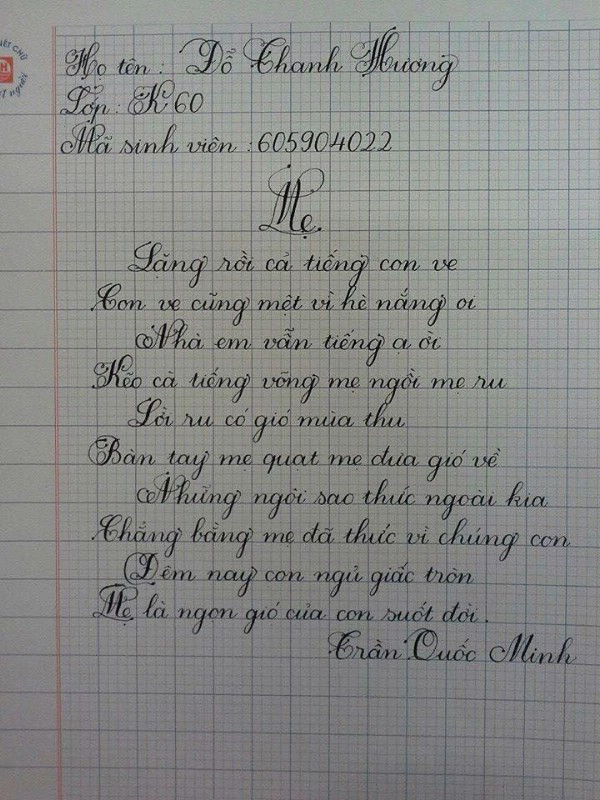 Họ tên : Đỗ Thanh Hương
Lớp : K60
Mã sinh viên : 605904022
Mẹ.
Lặng rồi cả tiếng con ve
Con ve cũng mệt vì hè nắng oi
Nhà em vẫn tiếng ạ ời
Kẽo cà tiếng võng mẹ ngồi mẹ ru
Lời ru có gió mùa thu
Bàn tay mẹ quạt mẹ đưa gió về
Những ngôi sao thức ngoài kia
Chẳng bằng mẹ đã thức vì chúng con
Đêm nay con ngủ giấc tròn
Mẹ là ngọn gió của con suốt đời.
Trần Quốc Minh